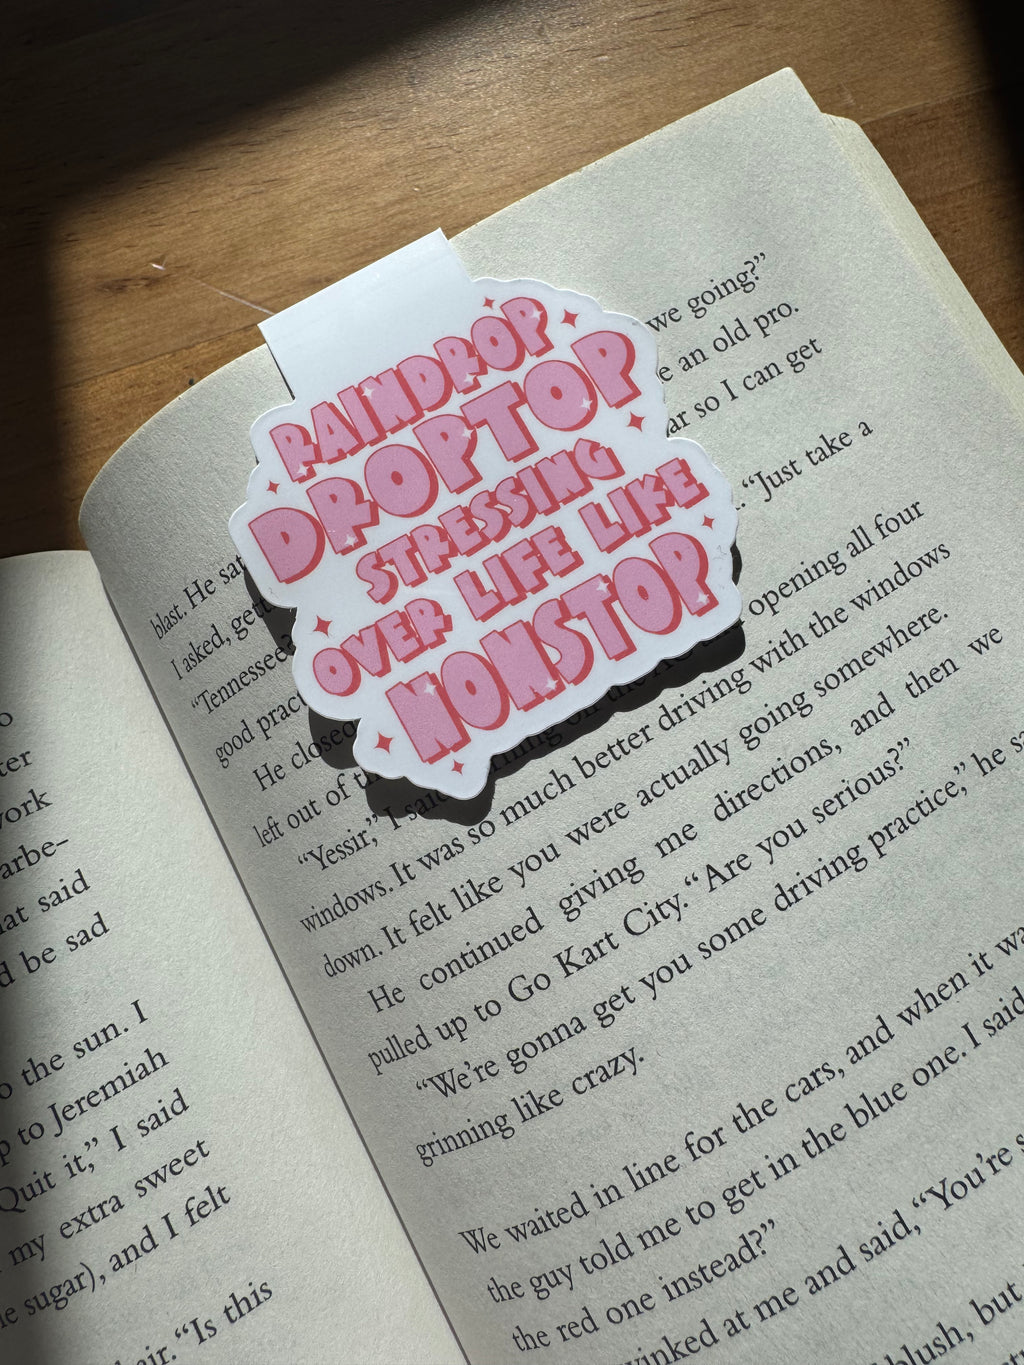 o
ter
ork
arbe–
at said
d be sad
o the sun. I
p to Jeremiah
Quit it,” I said
my extra sweet
e sugar), and I felt
air. “Is this
RAINDROP
DROPTOP
STRESSING
OVER LIFE LIKE
NONSTOP
we going?”
blast. He sat e an old pro.
I asked, gett ar so I can get
“Tennessee?
good pract “Just take a
He closed
left out of th opening all four
“Yessir,” I said windows
windows. It was so much better driving with the windows
down. It felt like you were actually going somewhere.
He continued giving me directions, and then we
pulled up to Go Kart City. “Are you serious?”
“We’re gonna get you some driving practice,” he sa
grinning like crazy.
We waited in line for the cars, and when it wa
the guy told me to get in the blue one. I said
the red one instead?”
inked at me and said, “You’re s
blush, but